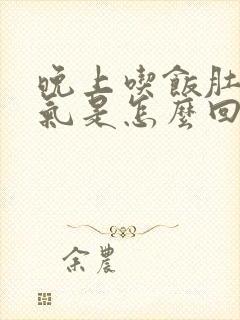 晚上喫飯肚
氣是怎麼回
余農